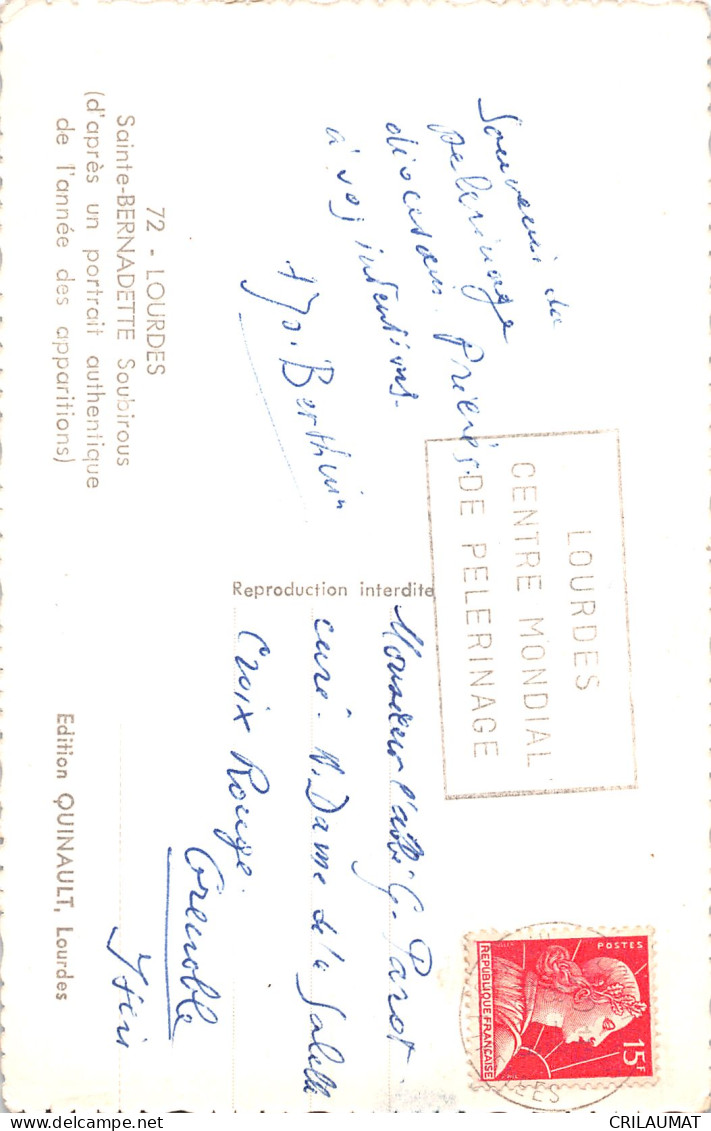 72 - LOURDES
Sainte-BERNADETTE Soubirous
(d'après un portrait authentique
de l'année des apparitions)
Souvenir du
pelerinage
diocesain. Prières
à vos intentions.
Berthuin
LOURDES
CENTRE MONDIAL
DE PELERINAGE
Reproduction interdite
Monsieur l'abbé G. Parot
curé. N. Dame de la Salette
Croix Rouge.
Grenoble
Isère
Edition QUINAULT, Lourdes
POSTES
REPUBLIQUE FRANÇAISE
15F
CRILAUMAT